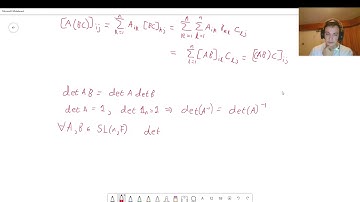 Microsoft Whiteboard
[A(BC)]ᵢⱼ = Σₖ₌₁ⁿ Aᵢₖ [BC]ₖⱼ = Σₖ₌₁ⁿ Σₗ₌₁ⁿ Aᵢₖ Bₖₗ Cₗⱼ
= Σₗ₌₁ⁿ [AB]ᵢₗ Cₗⱼ = [(AB)C]ᵢⱼ
det AB = det A det B
det A = 1, det 1ₙ = 1 ⇒ det(A⁻¹) = det(A)⁻¹
∀A, B ∈ SL(n,F) det